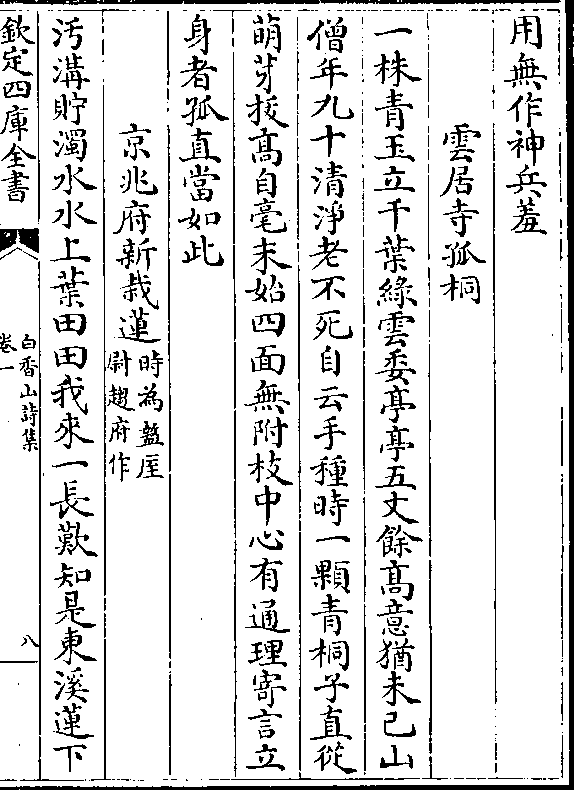 用無作神兵羞
雲居寺孤桐
一株青玉立千葉綠雲委亭亭五丈餘髙意猶未已山
僧年九十清淨老不死自云手種時一顆青桐子直從
萌芽拔髙自毫末始四面無附枝中心有通理寄言立
身者孤直當如此
京兆府新栽蓮時為盩厔
尉趨府作
汚溝貯濁水水上葉田田我來一長歎知是東溪蓮下
欽定四庫全書
白香山詩集
卷一
八